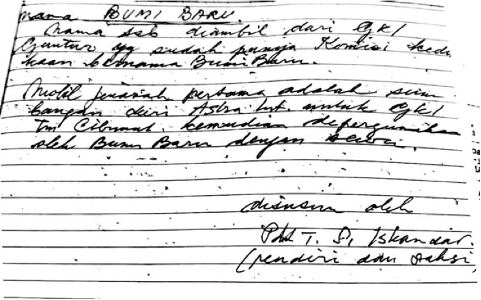 nama BUMI BARU.
Nama tsb diambil dari GKI
Guntur yg sudah punya Komisi kedu
kaan bernama Bumi Baru.
Mobil jenazah pertama adalah sum
bangan dari Astra Int. untuk GKI
Tm Cibunut. kemudian dipergunakan
oleh Bumi Baru dengan sewa.
disusun oleh
Pdt T. S. Iskandar.
(pendiri dan saksi